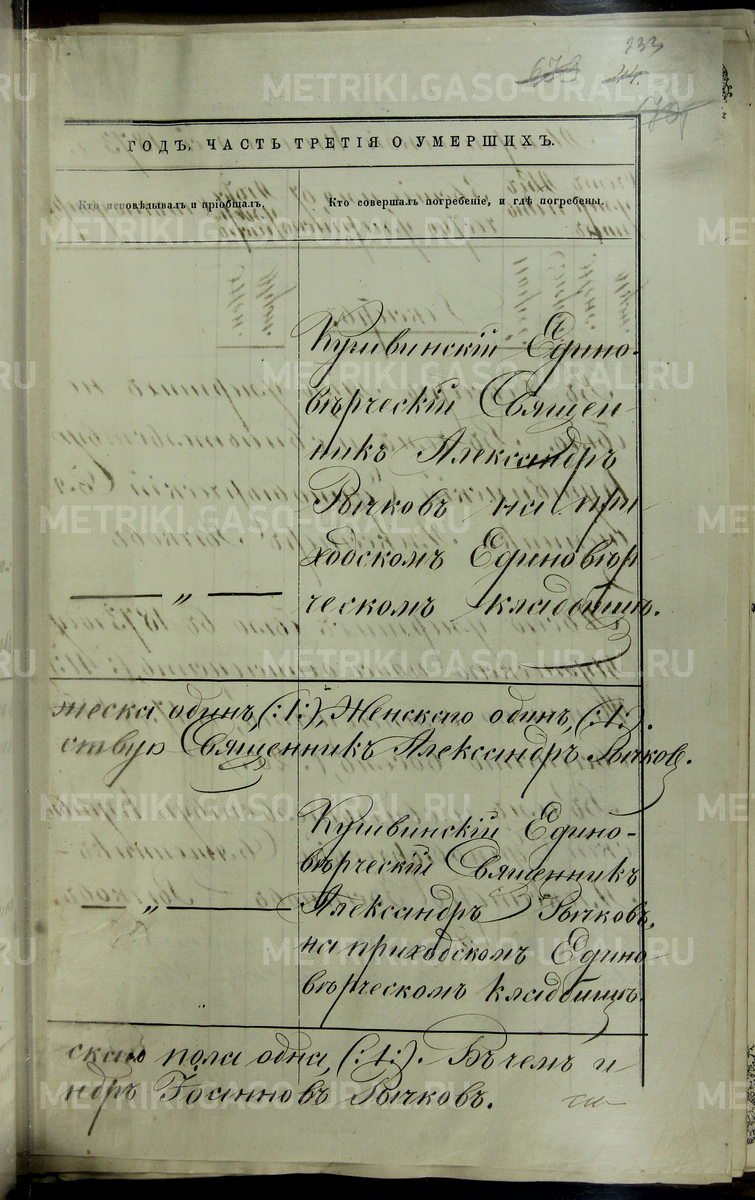 233
679 214.
METRIKI.GASO-URAL.RU
ГОДЪ, ЧАСТЬ ТРЕТІЯ О УМЕРШИХЪ.
Кто исповѣдывалъ и пріобщалъ.
Кто совершалъ погребеніе, и гдѣ погребены.
Кушвинскій Едино-
вѣрческій Священ-
никъ Александръ
Рычковъ на при
ходскомъ Единовѣр
— „ — ческомъ кладбищѣ.
жеска одинъ, (:1:), Женскаго одинъ, (:1:).
ствую Священникъ Александръ Рычковъ.
Кушвинскій Едино-
вѣрческій Священникъ
— „ — Александръ Рычковъ,
на приходскомъ Едино
вѣрческомъ кладбищѣ.
скаго пола одна, (:1:). Въ чемъ и
ндръ Іоанновъ Рычковъ.